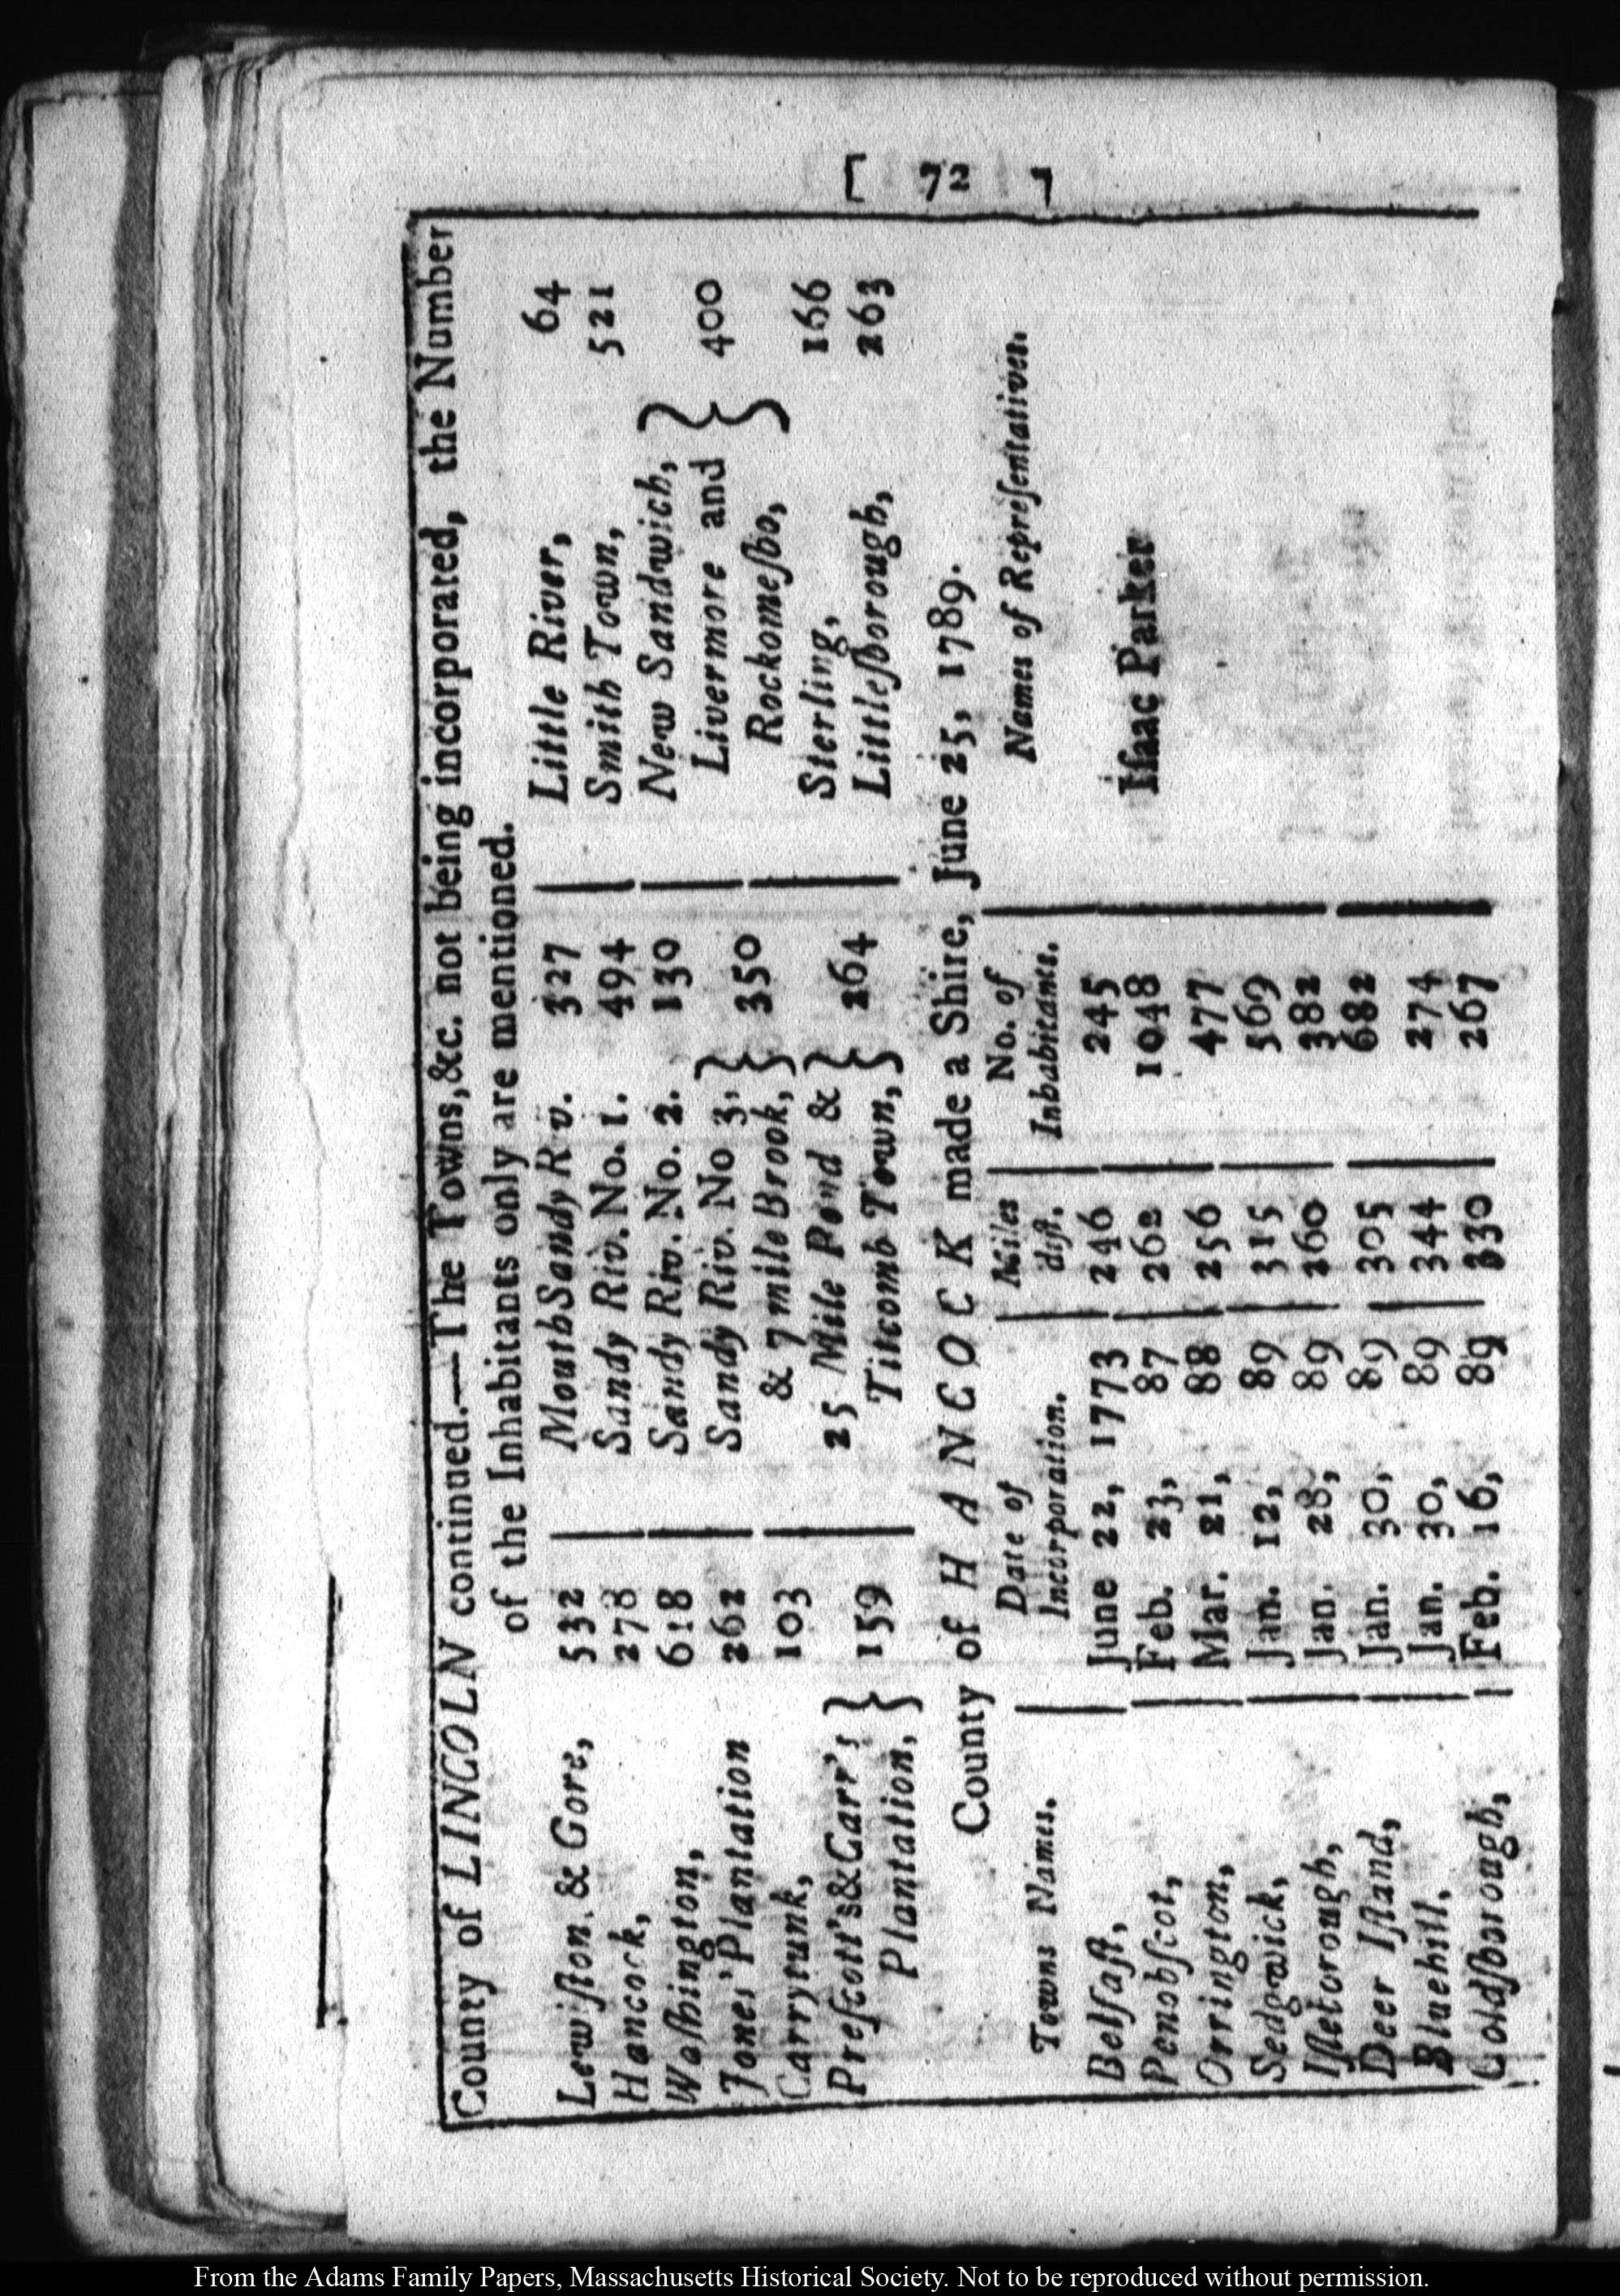 [ 72 ]
County of LINCOLN continued.—The Towns,&c. not being incorporated, the Number
of the Inhabitants only are mentioned.
Lewiſton & Gore, 532 | Mouth Sandy R v. 327 | Little River, 64
Hancock, 278 | Sandy Riv. No. 1. 494 | Smith Town, 521
Waſhington, 618 | Sandy Riv. No. 2. 130 | New Sandwich, }
Jones' Plantation 262 | Sandy Riv. No 3, } | Livermore and } 400
Carrytunk, 103 | & 7 mile Brook, } 350 | Rockomeſho, }
Preſcott's & Carr's } | 25 Mile Pond & } | Sterling, 166
Plantation, } 159 | Titcomb Town, } 264 | Littleſborough, 263
County of HANCOCK made a Shire, June 25, 1789.
Towns Names. | Date of Incorporation. | Miles diſt. | No. of Inhabitants. | Names of Repreſentatives.
Belfaſt, | June 22, 1773 | 246 | 245
Penobſcot, | Feb. 23, 87 | 262 | 1048 | Iſaac Parker
Orrington, | Mar. 21, 88 | 256 | 477
Sedgwick, | Jan. 12, 89 | 315 | 569
Iſletorough, | Jan. 28, 89 | 260 | 382
Deer Iſland, | Jan. 30, 89 | 305 | 682
Bluehill, | Jan. 30, 89 | 344 | 274
Goldſborough, | Feb. 16, 89 | 330 | 267
From the Adams Family Papers, Massachusetts Historical Society. Not to be reproduced without permission.